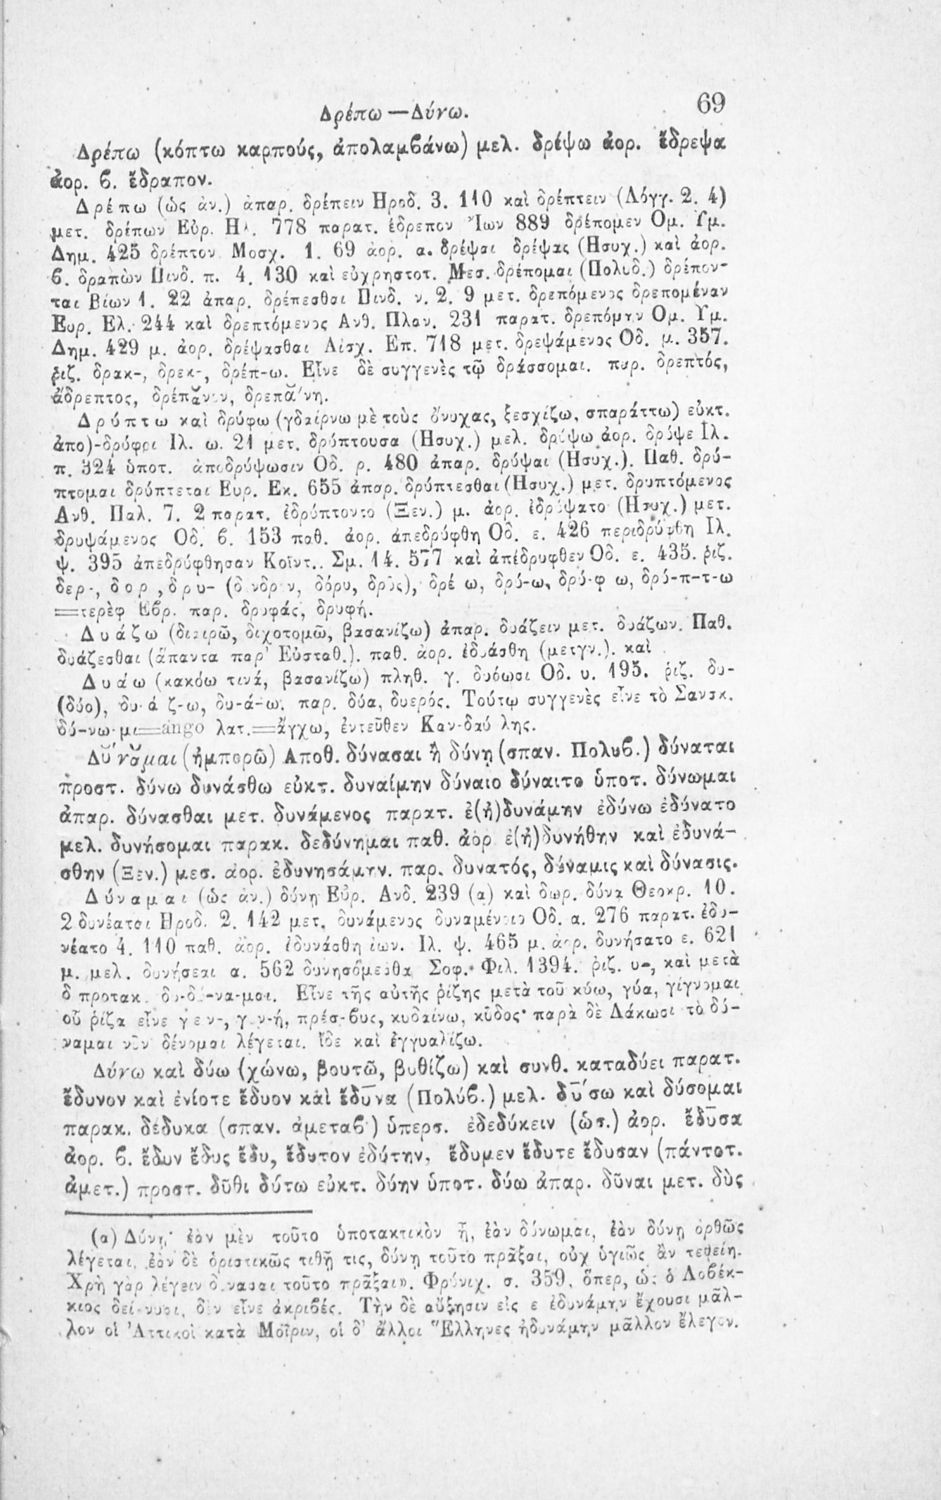 Δρέπω — Δύνω. 69
Δρέπω (κόπτω καρπούς, ἀπολαμβάνω) μελ. δρέψω ἀορ. ἔδρεψα
ἀορ. β. ἔδραπον.
Δρέπω (ὡς ἀν.) ἀπαρ. δρέπειν Ηροδ. 3. 110 καὶ δρέπτειν (Λόγγ. 2. 4)
μετ. δρέπων Εὐρ. Ηλ. 778 παρατ. ἔδρεπον Ἴων 889 δρέπομεν Ομ. Ὑμ.
Δημ. 425 δρέπτον Μοσχ. 1. 69 ἀορ. α. δρέψαι δρέψας (Ησυχ.) καὶ ἀορ.
β. δραπὼν Πινδ. π. 4. 130 καὶ εὐχρηστοτ. Μεσ. δρέπομαι (Πολυδ.) δρέπον-
ται Βίων 1. 22 ἀπαρ. δρέπεσθαι Πινδ. ν. 2. 9 μετ. δρεπόμενος δρεπομέναν
Ευρ. Ελ. 244 καὶ δρεπτόμενος Ανθ. Πλαν. 231 παρατ. δρεπόμην Ομ. Ὑμ.
Δημ. 429 μ. ἀορ. δρέψασθαι Αἰσχ. Επ. 718 μετ. δρεψάμενος Οδ. μ. 357.
ῥιζ. δρακ-, δρεκ-, δρέπ-ω. Εἶνε δὲ συγγενὲς τῷ δράσσομαι. παρ. δρεπτός,
ἄδρεπτος, δρέπανον, δρεπάνη.
Δρύπτω καὶ δρύφω (γδαίρνω μὲ τοὺς ὄνυχας, ξεσχίζω, σπαράττω) εὐκτ.
ἀπο)-δρύφοι Ιλ. ω. 21 μετ. δρύπτουσα (Ησυχ.) μελ. δρύψω ἀορ. δρύψε Ιλ.
π. 324 ὑποτ. ἀποδρύψωσιν Οδ. ρ. 480 ἀπαρ. δρύψαι (Ησυχ.). Παθ. δρύ-
πτομαι δρύπτεται Ευρ. Εκ. 655 ἀπαρ. δρύπτεσθαι (Ησυχ.) μετ. δρυπτόμενος
Ανθ. Παλ. 7. 2 παρατ. ἐδρύπτοντο (Ξεν.) μ. ἀορ. ἐδρύψατο (Ησυχ.) μετ.
δρυψάμενος Οδ. β. 153 παθ. ἀορ. ἀπεδρύφθη Οδ. ε. 426 περιδρύφθη Ιλ.
ψ. 395 ἀπεδρύφθησαν Κοϊντ. Σμ. 14. 577 καὶ ἀπέδρυφθεν Οδ. ε. 435. ῥιζ.
δερ-, δορ, δρυ- (δένδρον, δόρυ, δρῦς), δρέ ω, δρύ-ω, δρύ-φ ω, δρύ-π-τ-ω
=τερὲφ Εβρ. παρ. δρυφάς, δρυφή.
Δυάζω (διαιρῶ, διχοτομῶ, βασανίζω) ἀπαρ. δυάζειν μετ. δυάζων. Παθ.
δυάζεσθαι (ἅπαντα παρ' Εὐσταθ.). παθ. ἀορ. ἐδυάσθη (μετγν.). καὶ
Δυάω (κακόω τινά, βασανίζω) πληθ. γ. δυόωσι Οδ. υ. 195. ῥιζ. δυ-
(δύο), δυ-ά ζ-ω, δυ-ά-ω. παρ. δύα, δυερός. Τούτῳ συγγενὲς εἶνε τὸ Σανσκ.
δύ-νω-μι=ango λατ.=ἄγχω, ἐντεῦθεν Καν-δαύ λης.
Δύναμαι (ἠμπορῶ) Αποθ. δύνασαι ἢ δύνῃ (σπαν. Πολυβ.) δύναται
προστ. δύνω δυνάσθω εὐκτ. δυναίμην δύναιο δύναιτο ὑποτ. δύνωμαι
ἀπαρ. δύνασθαι μετ. δυνάμενος παρατ. ἐ(ἠ)δυνάμην ἐδύνω ἐδύνατο
μελ. δυνήσομαι παρακ. δεδύνημαι παθ. ἀορ ἐ(ἠ)δυνήθην καὶ ἐδυνά-
σθην (Ξεν.) μεσ. ἀορ. ἐδυνησάμην. παρ. δυνατός, δύναμις καὶ δύνασις.
Δύναμαι (ὡς ἀν.) δύνῃ Εὐρ. Ανδ. 239 (α) καὶ δωρ. δύνᾳ Θεοκρ. 10.
2 δυνέαται Ηροδ. 2. 142 μετ. δυνάμενος δυναμένοιο Οδ. α. 276 παρατ. ἐδυ-
νέατο 4. 110 παθ. ἀορ. ἐδυνάσθη ἰων. Ιλ. ψ. 465 μ. ἀορ. δυνήσατο ε. 621
μ. μελ. δυνήσεαι α. 562 δυνησόμεσθα Σοφ. Φιλ. 1394. ῥιζ. υ-, καὶ μετὰ
δ προτακ. δυ-δύ-να-μαι. Εἶνε τῆς αὐτῆς ῥίζης μετὰ τοῦ κύω, γύα, γίγνομαι
οὗ ῥίζα εἶνε γεν-, γον-ή, πρέσ-βυς, κυδαίνω, κῦδος· παρὰ δὲ Λάκωσι τὸ δύ-
ναμαι νῦν δένομαι λέγεται. Ἴδε καὶ ἐγγυαλίζω.
Δύνω καὶ δύω (χώνω, βουτῶ, βυθίζω) καὶ συνθ. καταδύει παρατ.
ἔδυνον καὶ ἐνίοτε ἔδυον καὶ ἔδυνα (Πολύβ.) μελ. δύσω καὶ δύσομαι
παρακ. δέδυκα (σπαν. ἀμεταβ.) ὑπερσ. ἐδεδύκειν (ὡσ.) ἀορ. ἔδυσα
ἀορ. β. ἔδυν ἔδυς ἔδυ, ἔδυτον ἐδύτην, ἔδυμεν ἔδυτε ἔδυσαν (πάντοτ.
ἀμετ.) προστ. δῦθι δύτω εὐκτ. δύην ὑποτ. δύω ἀπαρ. δῦναι μετ. δὺς
(α) Δύνῃ· ἐὰν μὲν τοῦτο ὑποτακτικὸν ᾖ, ἐὰν δύνωμαι, ἐὰν δύνῃ ὀρθῶς
λέγεται, ἐὰν δὲ ὁριστικῶς τιθῇ τις, δύνῃ τοῦτο πρᾶξαι, οὐχ ὑγιῶς ἂν τεθείη.
Χρὴ γὰρ λέγειν δύνασαι τοῦτο πρᾶξαι». Φρύνιχ. σ. 359, ὅπερ, ὡς ὁ Λοβέκ-
κιος δείκνυσι, δὲν εἶνε ἀκριβές. Τὴν δὲ αὔξησιν εἰς ε ἐδυνάμην ἔχουσι μᾶλ-
λον οἱ Ἀττικοὶ κατὰ Μοῖριν, οἱ δ' ἄλλοι Ἕλληνες ἠδυνάμην μᾶλλον ἔλεγον.